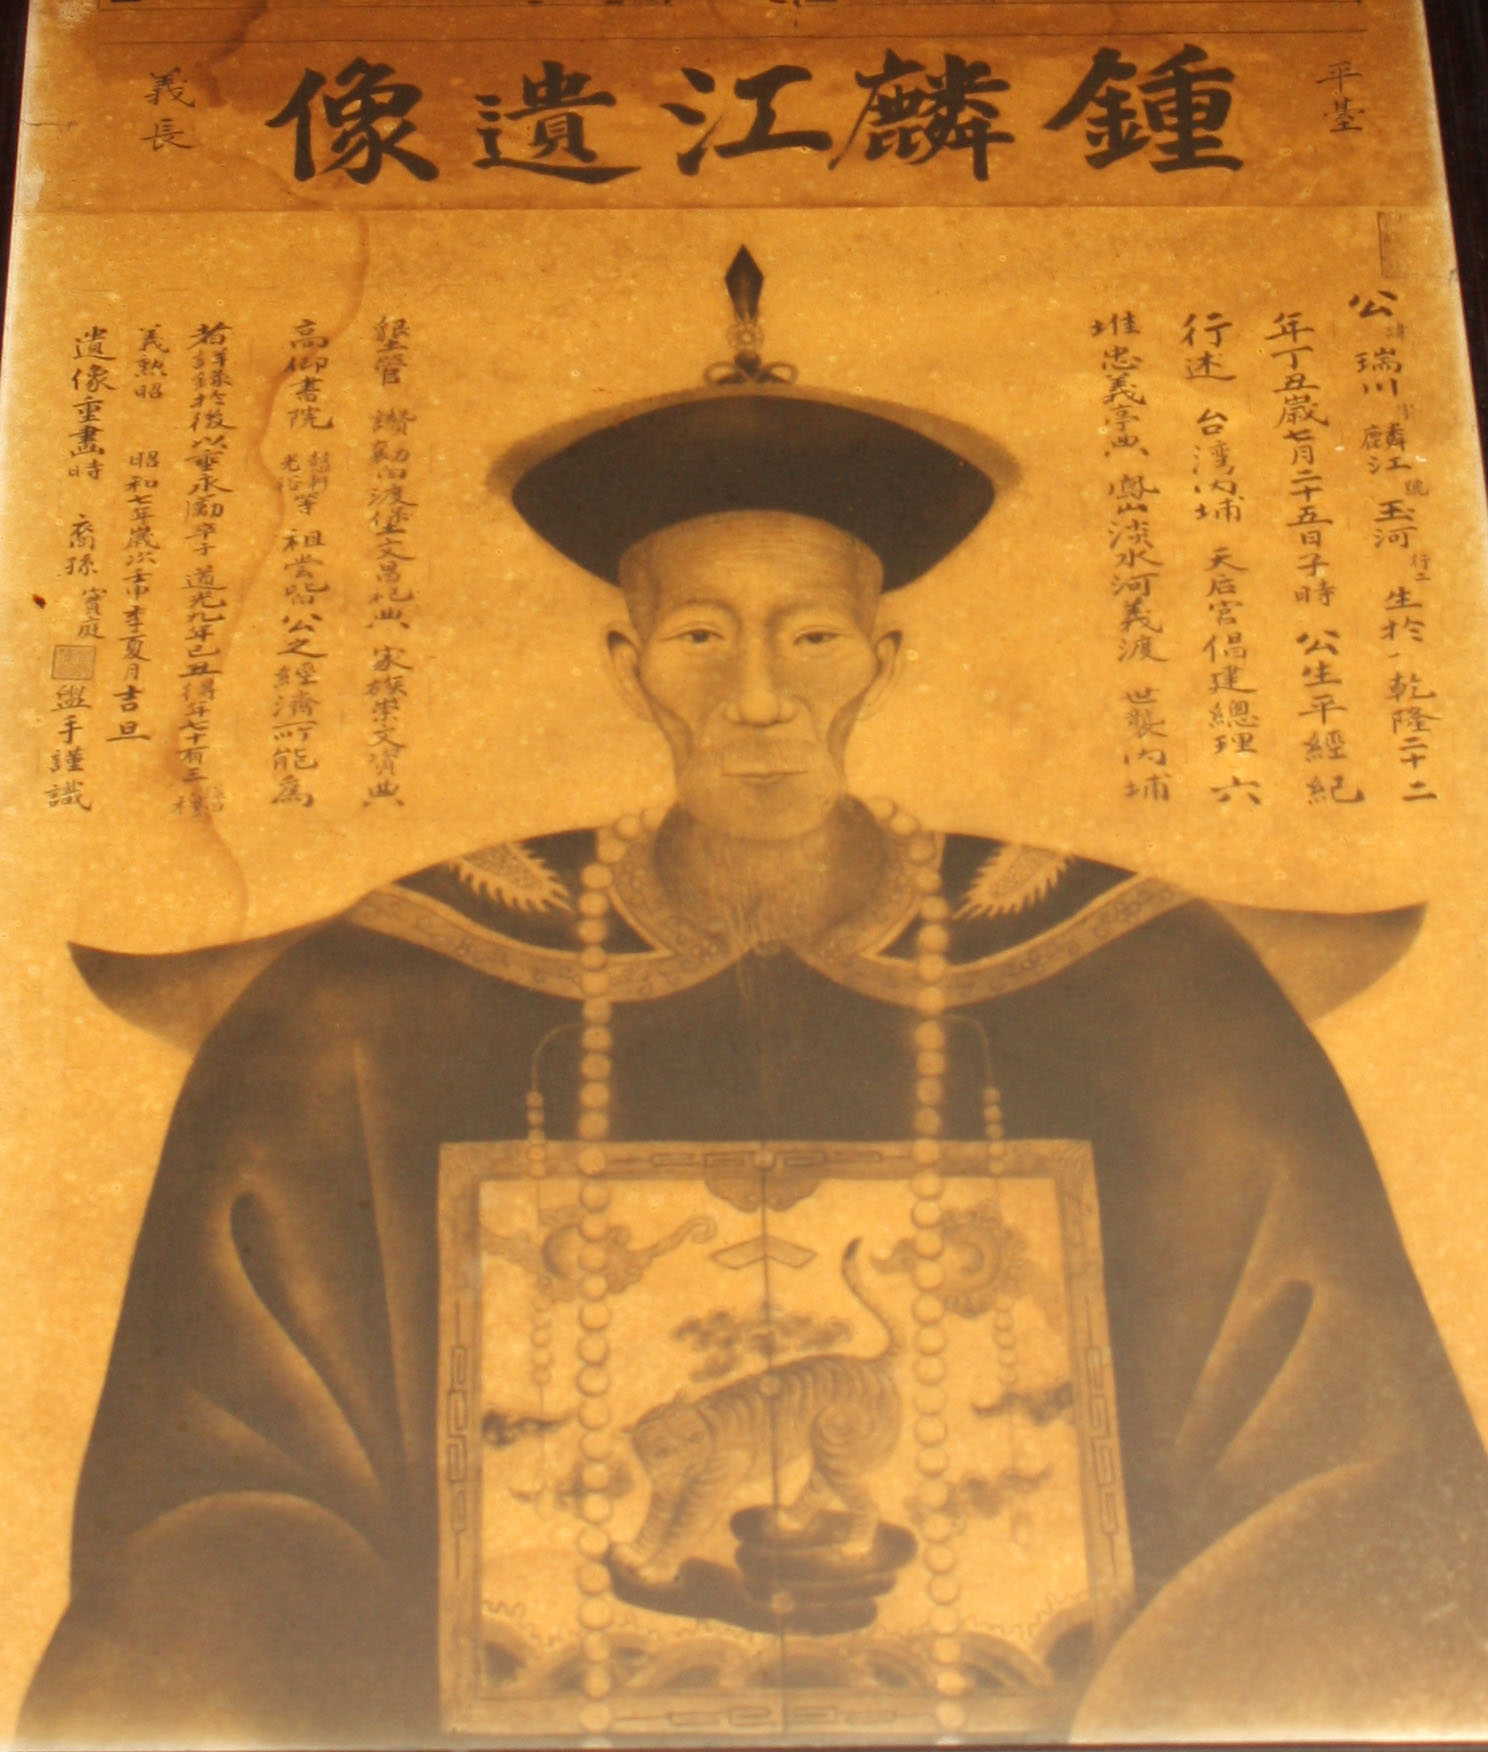 平臺
鍾麟江遺像
義長
公諱瑞川字麟江號玉河行二生於乾隆二十二
年丁丑歲七月二十五日子時 公生平經紀
行述 台灣內埔 天后宮倡建總理 六
堆忠義亭典 鳳山淡水河義渡 世襲內埔
墾管 讚勸向渡 文昌祀典 家族崇文資典
高仰書院 等 祖嘗皆公之經濟所能為
者詳錄於後以垂永勵卒于道光九年己丑得年七十有三
義勲昭 昭和七年歲次壬申季夏月吉旦
遺像重畫時 裔孫寶庭 盥手謹識